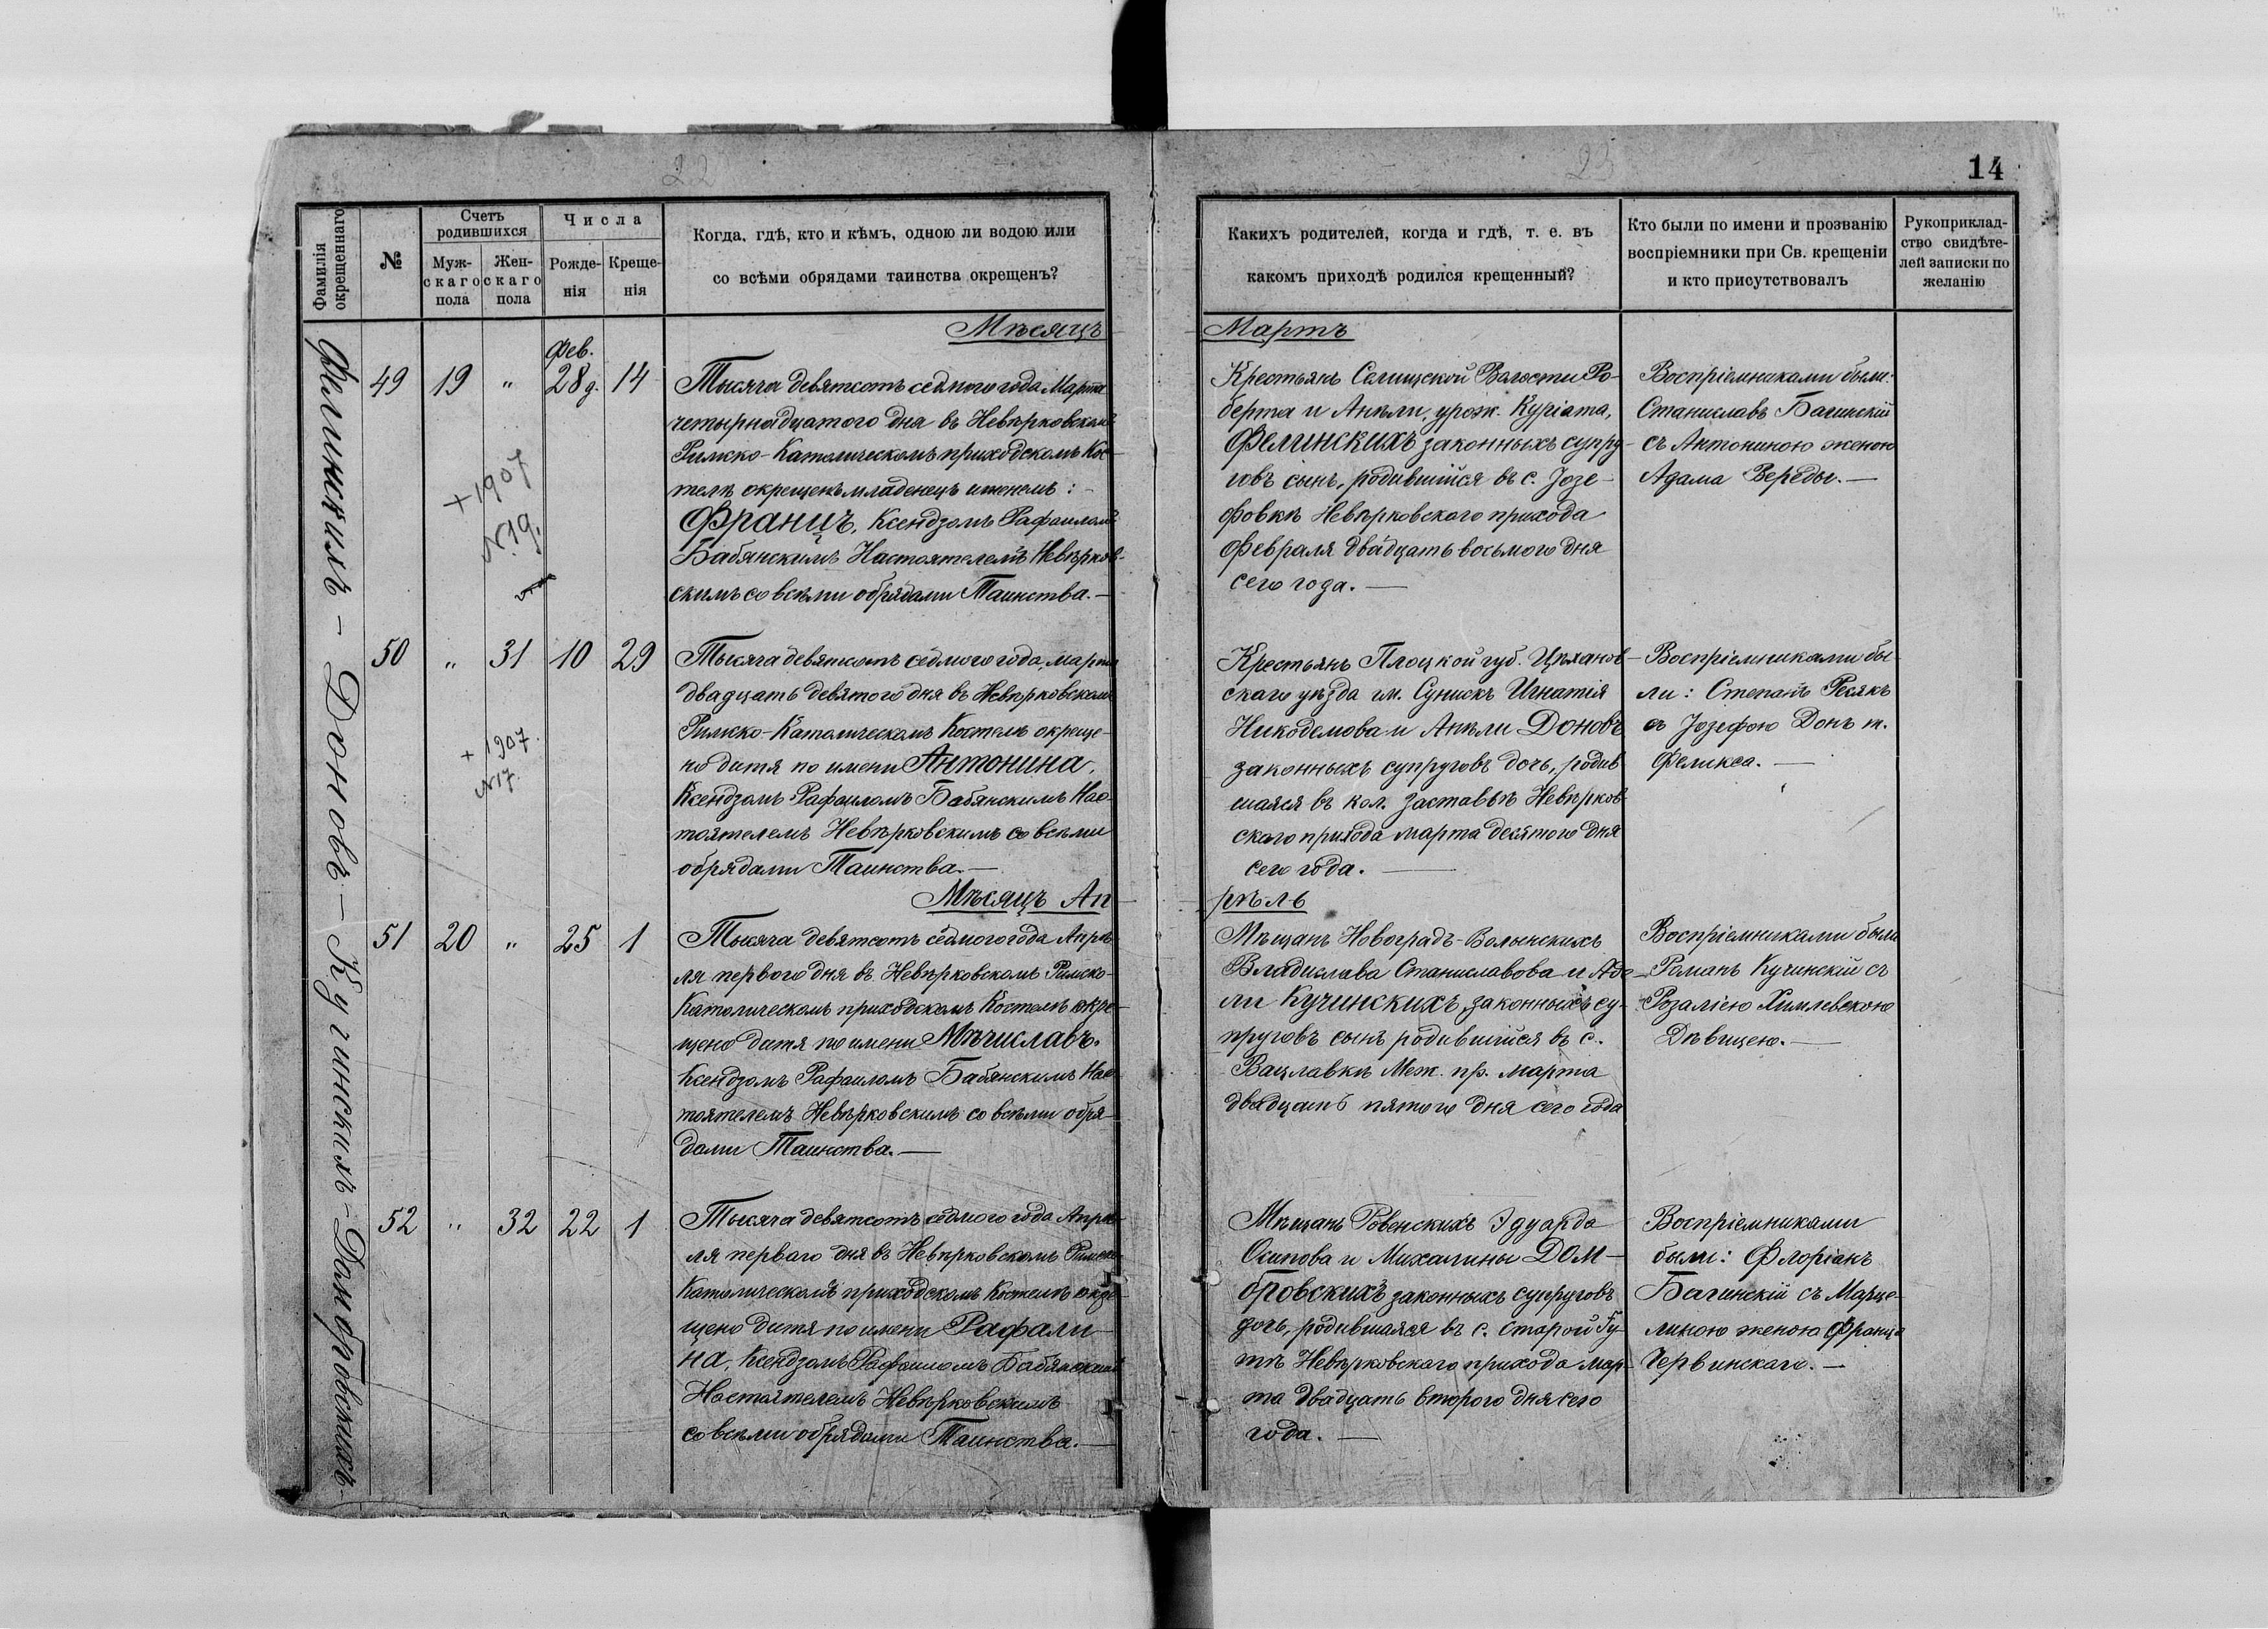 22
23
14
Фамилія окрещеннаго
№
Счетъ родившихся
Муж-
скаго
пола
Жен-
скаго
пола
Числа
Рожде-
нія
Креще-
нія
Когда, гдѣ, кто и кѣмъ, одною ли водою или
со всѣми обрядами таинства окрещенъ?
Какихъ родителей, когда и гдѣ, т. е. въ
какомъ приходѣ родился крещенный?
Кто были по имени и прозванію
воспріемники при Св. крещеніи
и кто присутствовалъ
Рукоприклад-
ство свидѣте-
лей записки по
желанію
Фелинскихъ - Доновъ - Кучинскихъ - Домбровскихъ
Мѣсяцъ
Мартъ
49 19 " Фев. 28 д. 14
+1907
N19.
Тысяча девятсотъ седмого года Марта
четырнадцатого дня въ Невѣрковскомъ
Римско-Католическомъ приходскомъ Кос-
телѣ окрещенъ младенецъ именемъ: -
Францъ, Ксендзомъ Рафаиломъ
Бабянскимъ Настоятелемъ Невѣрков-
скимъ со всѣми обрядами Таинства. —
Крестьянъ Селищской Волости Ро-
берта и Анѣли, урож. Куріата,
Фелинскихъ законныхъ супру-
говъ сынъ, родившійся въ с. Јозе-
фовкѣ Невѣрковского прихода
Февраля двадцать восьмого дня
сего года. —
Воспріемниками были:
Станиславъ Багинскій
съ Антониною женою
Адама Вереды. —
50 " 31 10 29
+ 1907.
N17.
Тысяча девятсотъ седмого года, марта
двадцать девятого дня въ Невѣрковскомъ
Римско-Католическомъ Костелѣ окреще-
но дитя по имени Антонина,
Ксендзомъ Рафаиломъ Бабянскимъ Нас-
тоятелемъ Невѣрковскимъ со всѣми
обрядами Таинства. —
Крестьянъ Плоцкой губ. Цѣханов-
скаго уѣзда гм. Сунискъ Игнатія
Никодемова и Анѣли Доновъ
законныхъ супруговъ дочь, родив
шаяся въ кол. Заставьѣ Невѣрков-
ского прихода марта десятого дня
сего года. —
Воспріемниками бы-
ли: Степанъ Ресякъ
съ Јозефою Донъ ж.
Феликса. —
Мѣсяцъ Ап
рѣль
51 20 " 25 1
Тысяча девятсотъ седмого года Апрѣ
ля первого дня въ Невѣрковскомъ Римско-
Католическомъ приходскомъ Костелѣ окре-
щено дитя по имени Мѣчиславъ.
Ксендзомъ Рафаиломъ Бабянскимъ Нас
тоятелемъ Невѣрковскимъ со всѣми обря-
дами Таинства. —
Мѣщанъ Новоградъ-Волынскихъ
Владислава Станиславова и Аде-
ли Кучинскихъ, законныхъ су-
пруговъ сынъ родившійся въ с.
Вацлавкѣ Меж. пр. марта
двадцать пятого дня сего года
Воспріемниками были
Романъ Кучинскій съ
Розаліею Химлевскою
Дѣвицею. —
52 " 32 22 1
Тысяча девятсотъ седмого года Апрѣ-
ля перваго дня въ Невѣрковскомъ Римско
Католическомъ приходскомъ Костелѣ окре-
щено дитя по имени Рафали-
на, Ксендзомъ Рафаиломъ Бабянскимъ
Настоятелемъ Невѣрковскимъ
со всѣми обрядами Таинства. —
Мѣщанъ Ровенскихъ Эдуарда
Осипова и Михалины Дом-
бровскихъ законныхъ супруговъ
дочь, родившаяся въ с. Старой Гу-
тѣ Невѣрковского прихода мар-
та двадцать второго дня сего
года. —
Воспріемниками
были: Флоріанъ
Багинскій съ Марце-
линою женою Франца
Червинскаго. —